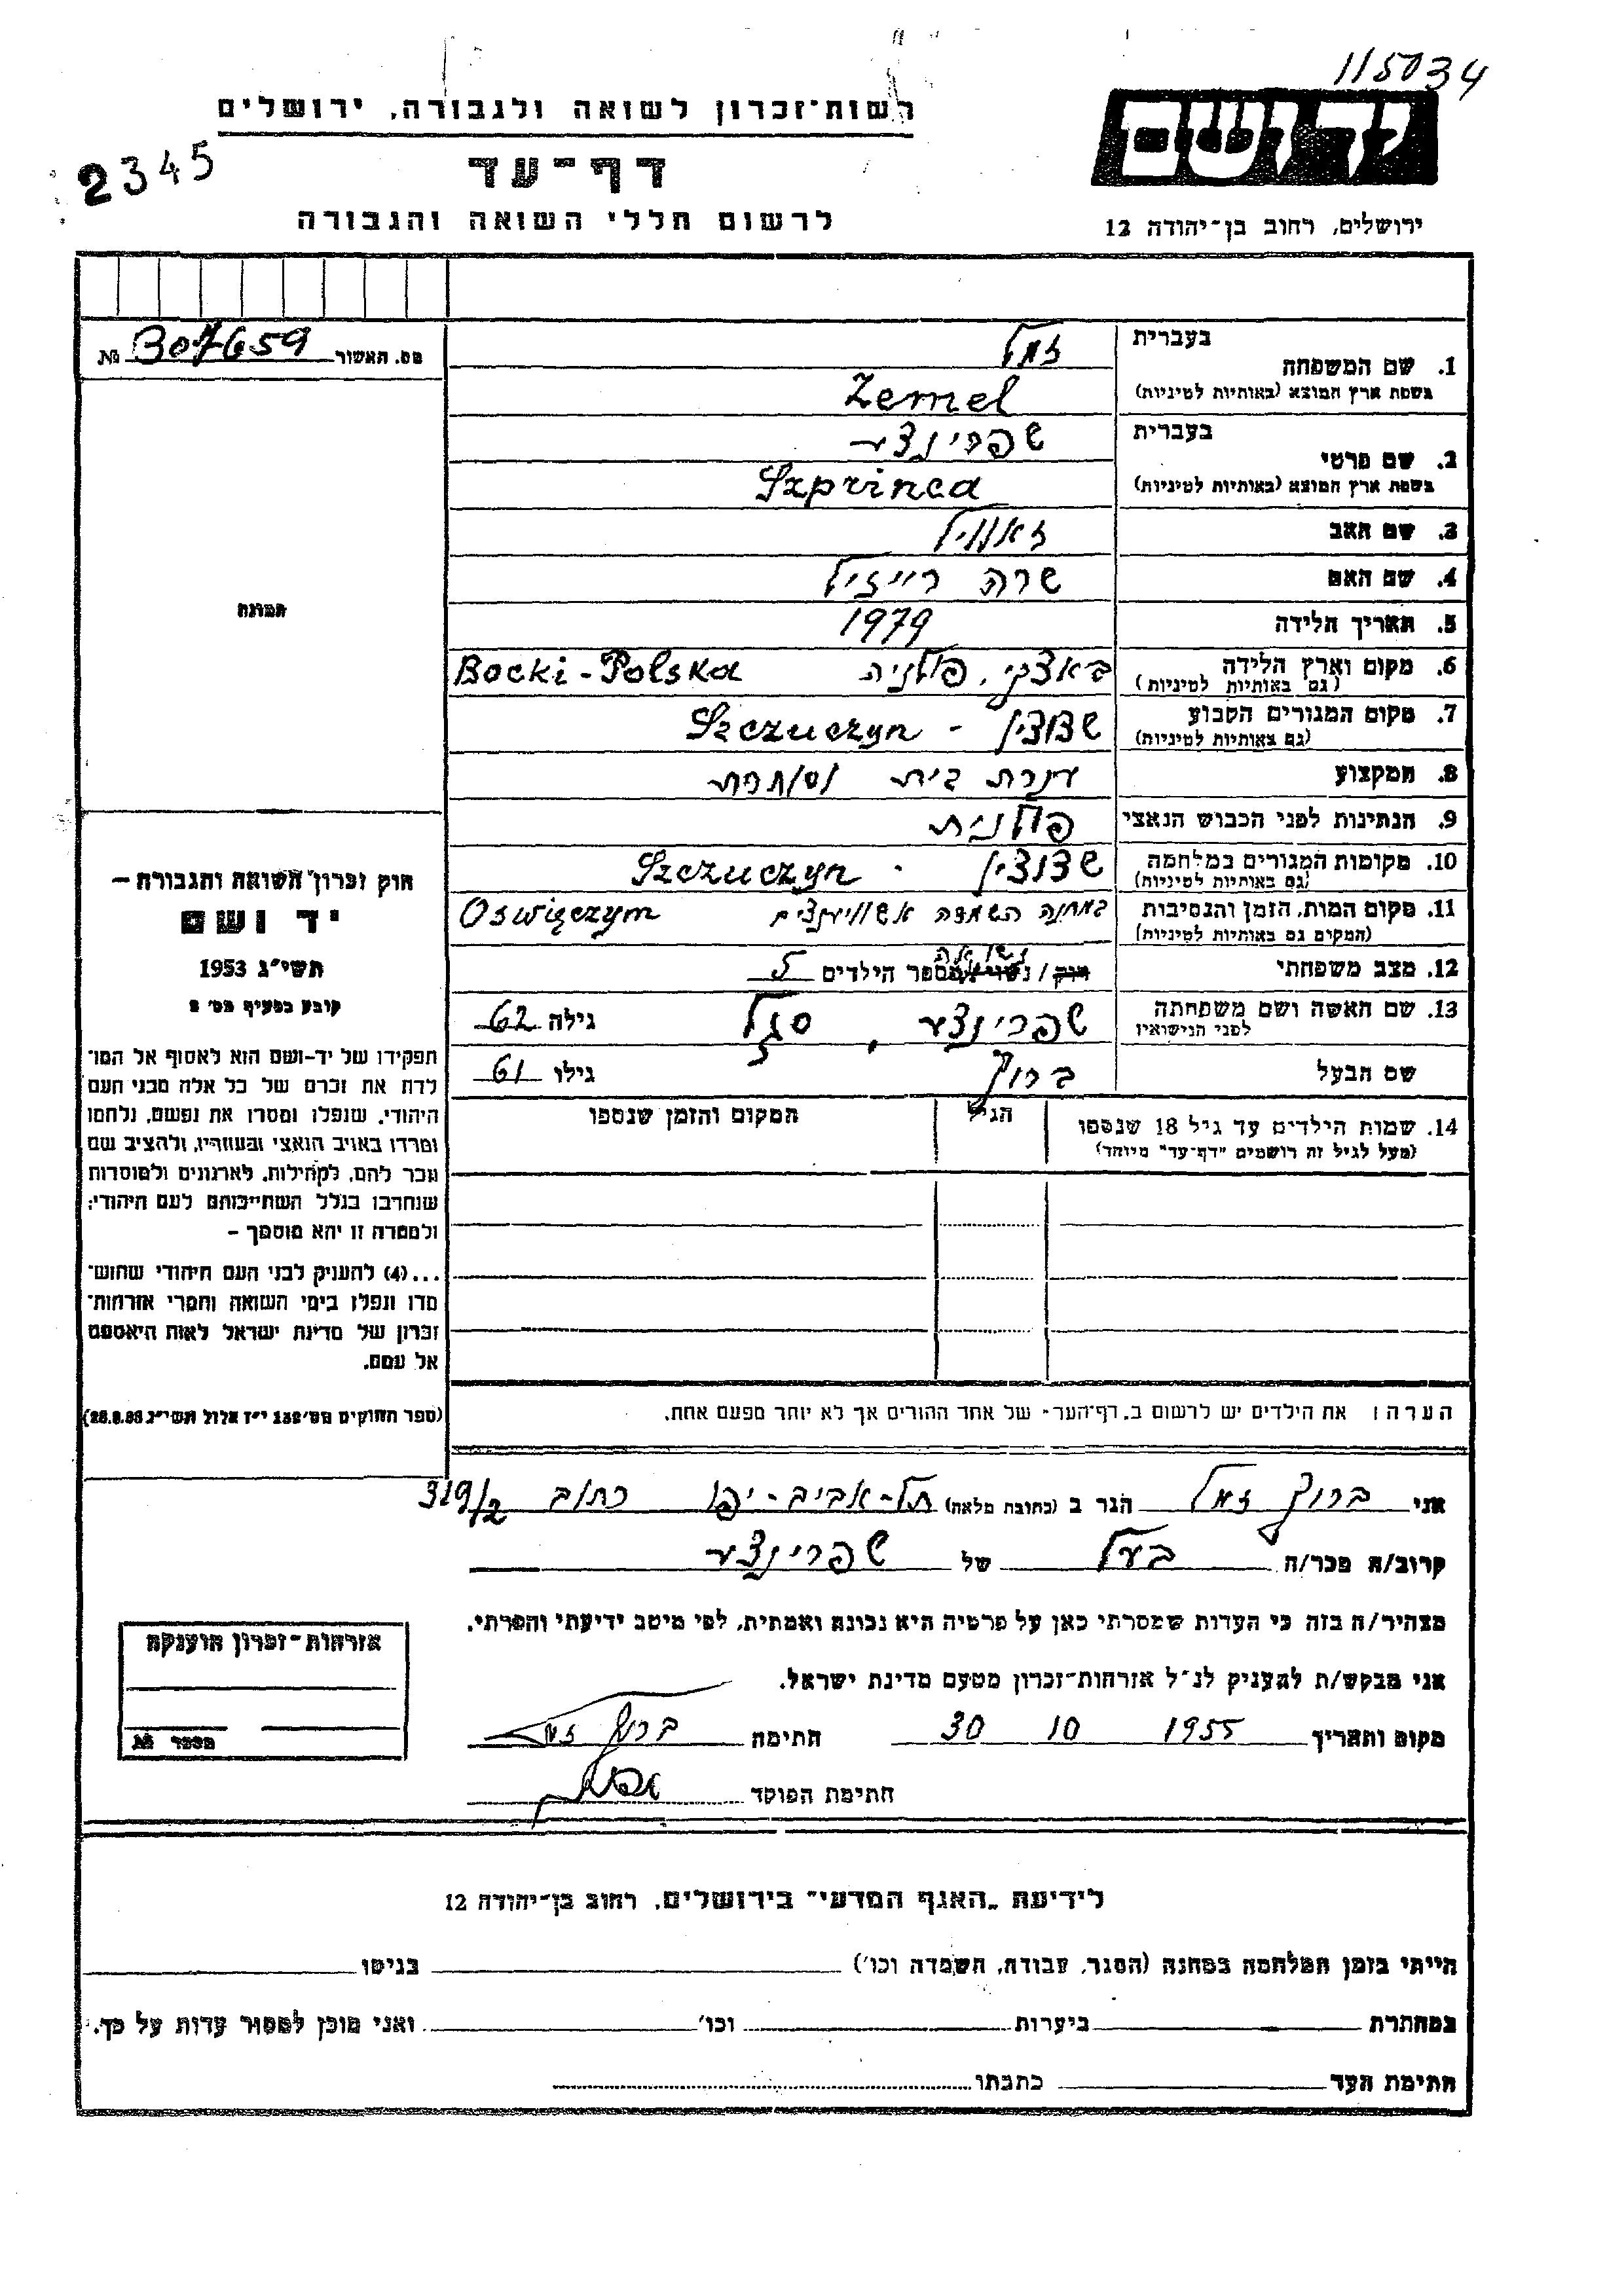 115034
רשות־זכרון לשואה ולגבורה, ירושלים
יד ושם
2345
דף־עד
לרשום חללי השואה והגבורה
ירושלים, רחוב בן־יהודה 12
מס. תאשור № 307659
תמונה
1. שם המשפחה
בעברית
זמל
בשפת ארץ המוצא (באותיות לטיניות)
Zemel
2. שם פרטי
בעברית
שפרינצע
בשפת ארץ המוצא (באותיות לטיניות)
Szprinca
3. שם האב
זאוויל
4. שם האם
שרה רייזיל
5. תאריך הלידה
1979
6. מקום וארץ הלידה
(גם באותיות לטיניות)
באצקי, פולניה Bocki - Polska
7. מקום המגורים הקבוע
(גם באותיות לטיניות)
שצוצין - Szczuczyn
8. המקצוע
עקרת בית
9. הנתינות לפני הכבוש הנאצי
פולנית
10. מקומות המגורים במלחמה
(גם באותיות לטיניות)
שצוצין - Szczuczyn
11. מקום המות, הזמן והנסיבות
(המקום גם באותיות לטיניות)
במחנה השמדה אשוויענצים Oswięczym
12. מצב משפחתי
רוק / נשוי / מספר הילדים 5
נשואה
13. שם האשה ושם משפחתה
לפני הנישואין
שפרינצע, סגל גילה 62
שם הבעל
ברוך גילו 61
14. שמות הילדים עד גיל 18 שנספו
(מעל לגיל זה רושמים "דף־עד" מיוחד)
הגיל
המקום והזמן שנספו
הערה: את הילדים יש לרשום ב„דף־העד״ של אחד ההורים אך לא יותר מפעם אחת.
חוק זכרון השואה והגבורה –
יד ושם
תשי״ג 1953
קובע בסעיף מס׳ 2
תפקידו של יד-ושם הוא לאסוף אל המו־
לדת את זכרם של כל אלה מבני העם
היהודי, שנפלו ומסרו את נפשם, נלחמו
ומרדו באויב הנאצי ובעוזריו, ולהציב שם
וזכר להם, לקהילות, לארגונים ולמוסדות
שנחרבו בגלל השתייכותם לעם היהודי;
ולמטרה זו יהא מוסמך –
...(4) להעניק לבני העם היהודי שהוש־
מדו ונפלו בימי השואה והמרי אזרחות־
זכרון של מדינת ישראל לאות היאספם
אל עמם.
(ספר החוקים מס׳ 132 י״ז אלול תשי״ג 28.8.53)
אני ברוך זמל הגר ב (כתובת מלאה) תל-אביב-יפו רחוב 319/2
קרוב/ה מכר/ה בעל של שפרינצע
מצהיר/ה בזה כי העדות שמסרתי כאן על פרטיה היא נכונה ואמתית, לפי מיטב ידיעתי והכרתי.
אני מבקש/ת להעניק לנ״ל אזרחות־זכרון מטעם מדינת ישראל.
מקום ותאריך 30 10 1955 חתימה ברוך זמל
חתימת הפוקד
אזרחות־זכרון הוענקה
מספר №
לידיעת „האגף המדעי״ בירושלים, רחוב בן־יהודה 12
הייתי בזמן המלחמה במחנה (הסגר, עבודה, השמדה וכו׳) בגיטו
במחתרת ביערות וכו׳ ואני מוכן למסור עדות על כך.
חתימת העד כתבתו